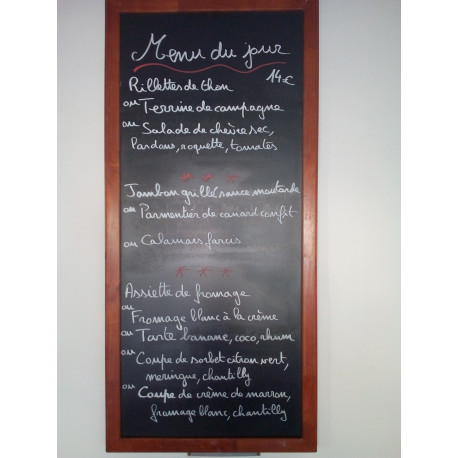 Menu du jour
14€
Rillettes de thon
ou Terrine de campagne
ou Salade de chèvre sec,
Lardons, roquette, tomates
* * *
Jambon grillé sauce moutarde
ou Parmentier de canard confit
ou Calamars farcis
* * *
Assiette de fromage
ou Fromage blanc à la crème
ou Tarte banane, coco, rhum
ou Coupe de sorbet citron vert,
meringue, chantilly
ou Coupe de crème de marron,
fromage blanc, chantilly